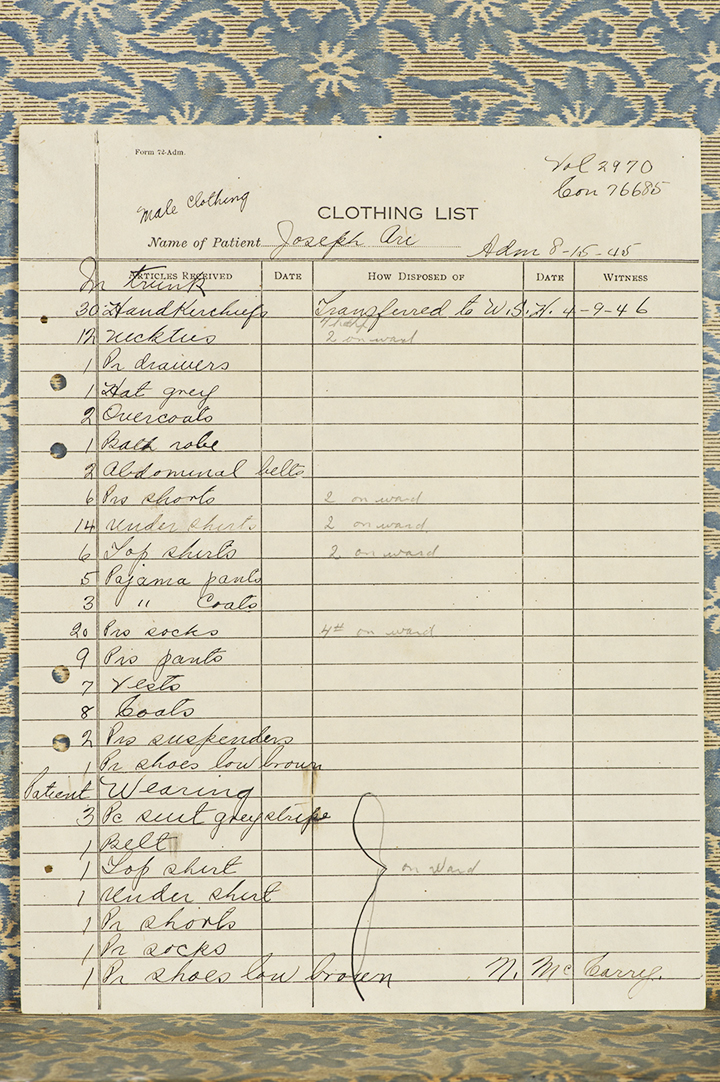 Form 72-Adm.
Vol 2970
Con 76685
male clothing
CLOTHING LIST
Name of Patient Joseph Ari
Adm 8-15-45
ARTICLES RECEIVED DATE HOW DISPOSED OF DATE WITNESS
In trunk
30 Handkerchiefs Transferred to W.S.H. 4-9-46
12 neckties 2 on ward
1 Pr drawers
1 Hat grey
2 Overcoats
1 Bath robe
2 Abdominal belts
6 Prs shorts 2 on ward
14 under shirts 2 on ward
6 Top shirts 2 on ward
5 Pajama pants
3 " Coats
20 Prs socks 4# on ward
9 Prs pants
7 Vests
8 Coats
2 Prs suspenders
1 Pr shoes low brown
Patient Wearing
3 Pc suit grey stripe
1 Belt
1 Top shirt on ward
1 under shirt
1 Pr shorts
1 Pr socks
1 Pr shoes low brown N. McCarry.